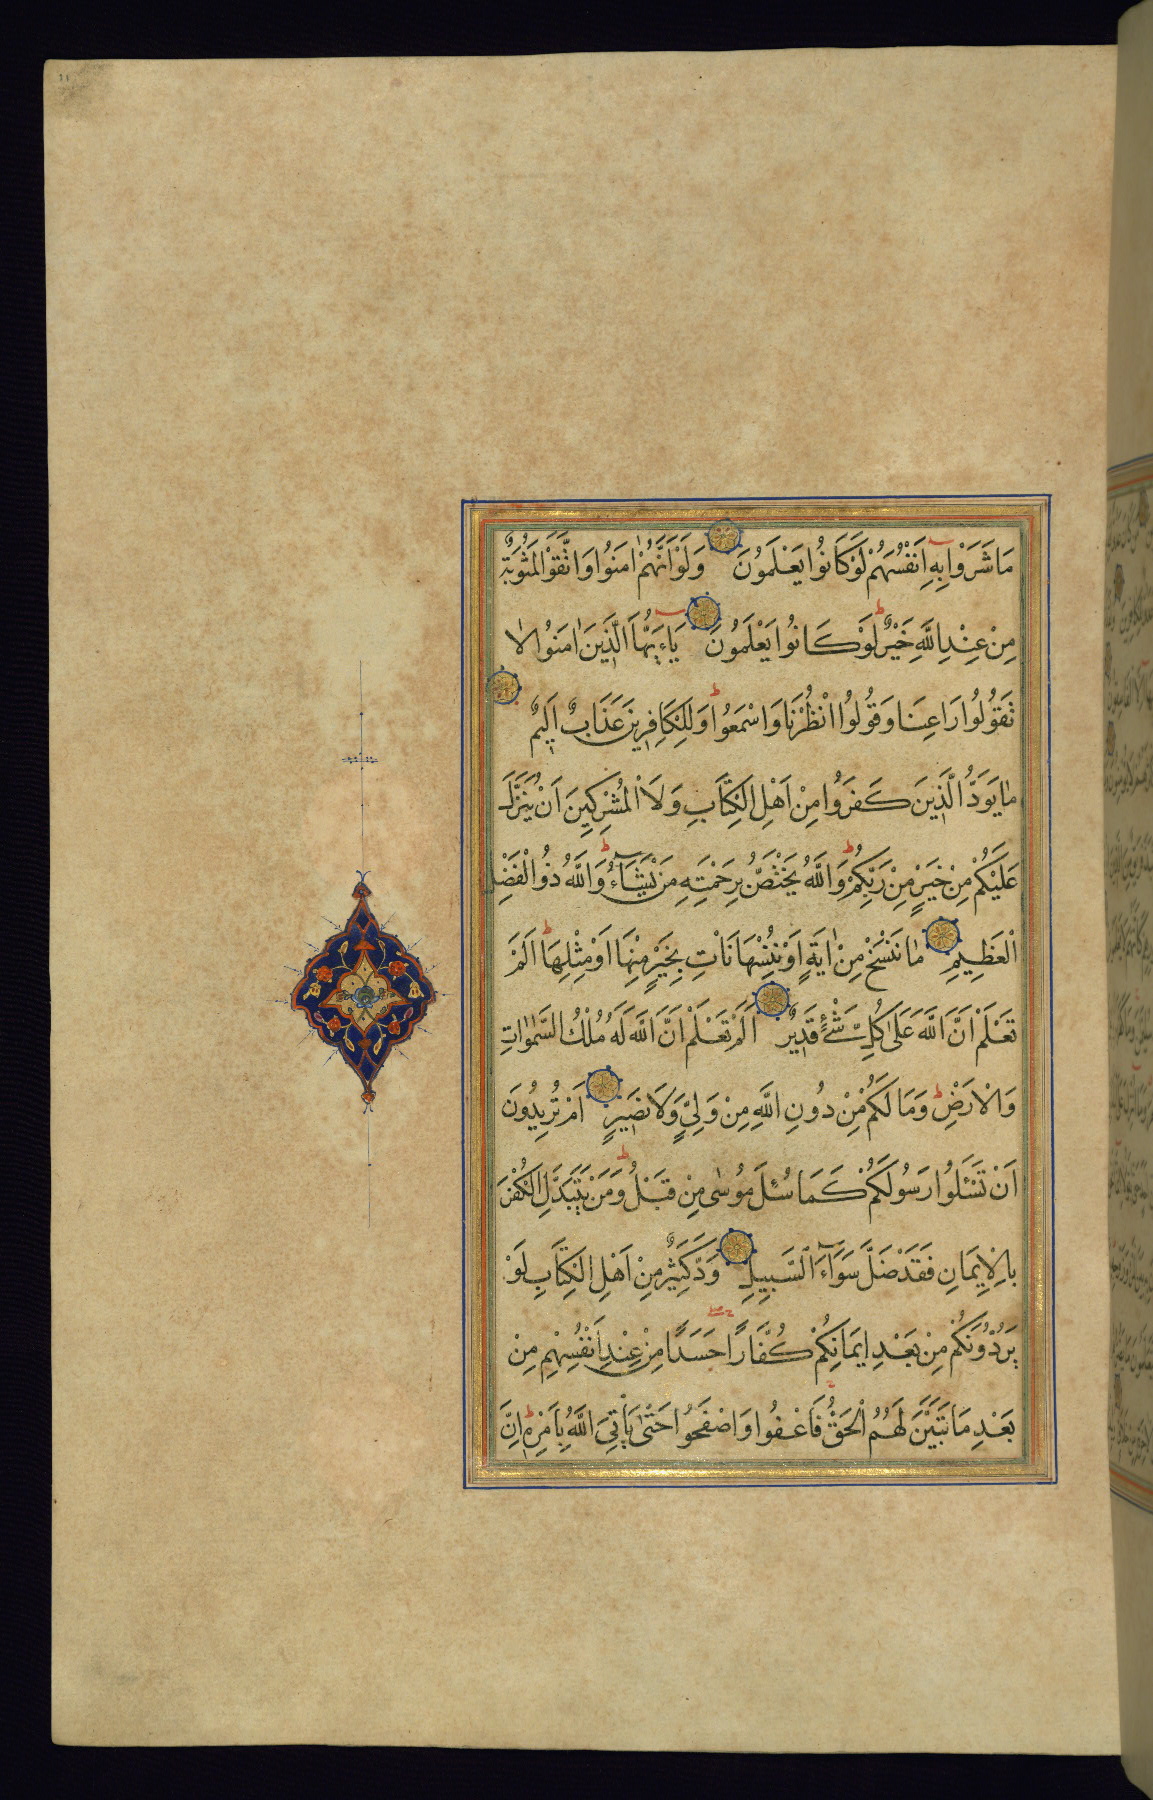 ١١
مَا شَرَوْا بِهِ اَنْفُسَهُمْ لَوْ كَانُوا يَعْلَمُونَ وَلَوْ اَنَّهُمْ اٰمَنُوا وَاتَّقَوْا لَمَثُوبَةٌ
مِنْ عِنْدِ اللَّهِ خَيْرٌ لَوْ كَانُوا يَعْلَمُونَ يَاءَيُّهَا الَّذِينَ اٰمَنُوا لَا
تَقُولُوا رَاعِنَا وَقُولُوا انْظُرْنَا وَاسْمَعُوا وَلِلْكَافِرِينَ عَذَابٌ اَلِيمٌ
مَا يَوَدُّ الَّذِينَ كَفَرُوا مِنْ اَهْلِ الْكِتَابِ وَلَا الْمُشْرِكِينَ اَنْ يُنَزَّلَ
عَلَيْكُمْ مِنْ خَيْرٍ مِنْ رَبِّكُمْ وَاللَّهُ يَخْتَصُّ بِرَحْمَتِهِ مَنْ يَشَآءُ وَاللَّهُ ذُو الْفَضْلِ
الْعَظِيمِ مَا نَنْسَخْ مِنْ اٰيَةٍ اَوْ نُنْسِهَا نَاْتِ بِخَيْرٍ مِنْهَا اَوْ مِثْلِهَا اَلَمْ
تَعْلَمْ اَنَّ اللَّهَ عَلٰى كُلِّ شَىْءٍ قَدِيرٌ اَلَمْ تَعْلَمْ اَنَّ اللَّهَ لَهُ مُلْكُ السَّمٰوَاتِ
وَالْاَرْضِ وَمَا لَكُمْ مِنْ دُونِ اللَّهِ مِنْ وَلِيٍّ وَلَا نَصِيرٍ اَمْ تُرِيدُونَ
اَنْ تَسْئَلُوا رَسُولَكُمْ كَمَا سُئِلَ مُوسٰى مِنْ قَبْلُ وَمَنْ يَتَبَدَّلِ الْكُفْرَ
بِالْاِيمَانِ فَقَدْ ضَلَّ سَوَآءَ السَّبِيلِ وَدَّ كَثِيرٌ مِنْ اَهْلِ الْكِتَابِ لَوْ
يَرُدُّونَكُمْ مِنْ بَعْدِ اِيمَانِكُمْ كُفَّارًا حَسَدًا مِنْ عِنْدِ اَنْفُسِهِمْ مِنْ
بَعْدِ مَا تَبَيَّنَ لَهُمُ الْحَقُّ فَاعْفُوا وَاصْفَحُوا حَتّٰى يَاْتِىَ اللَّهُ بِاَمْرِهِ اِنَّ